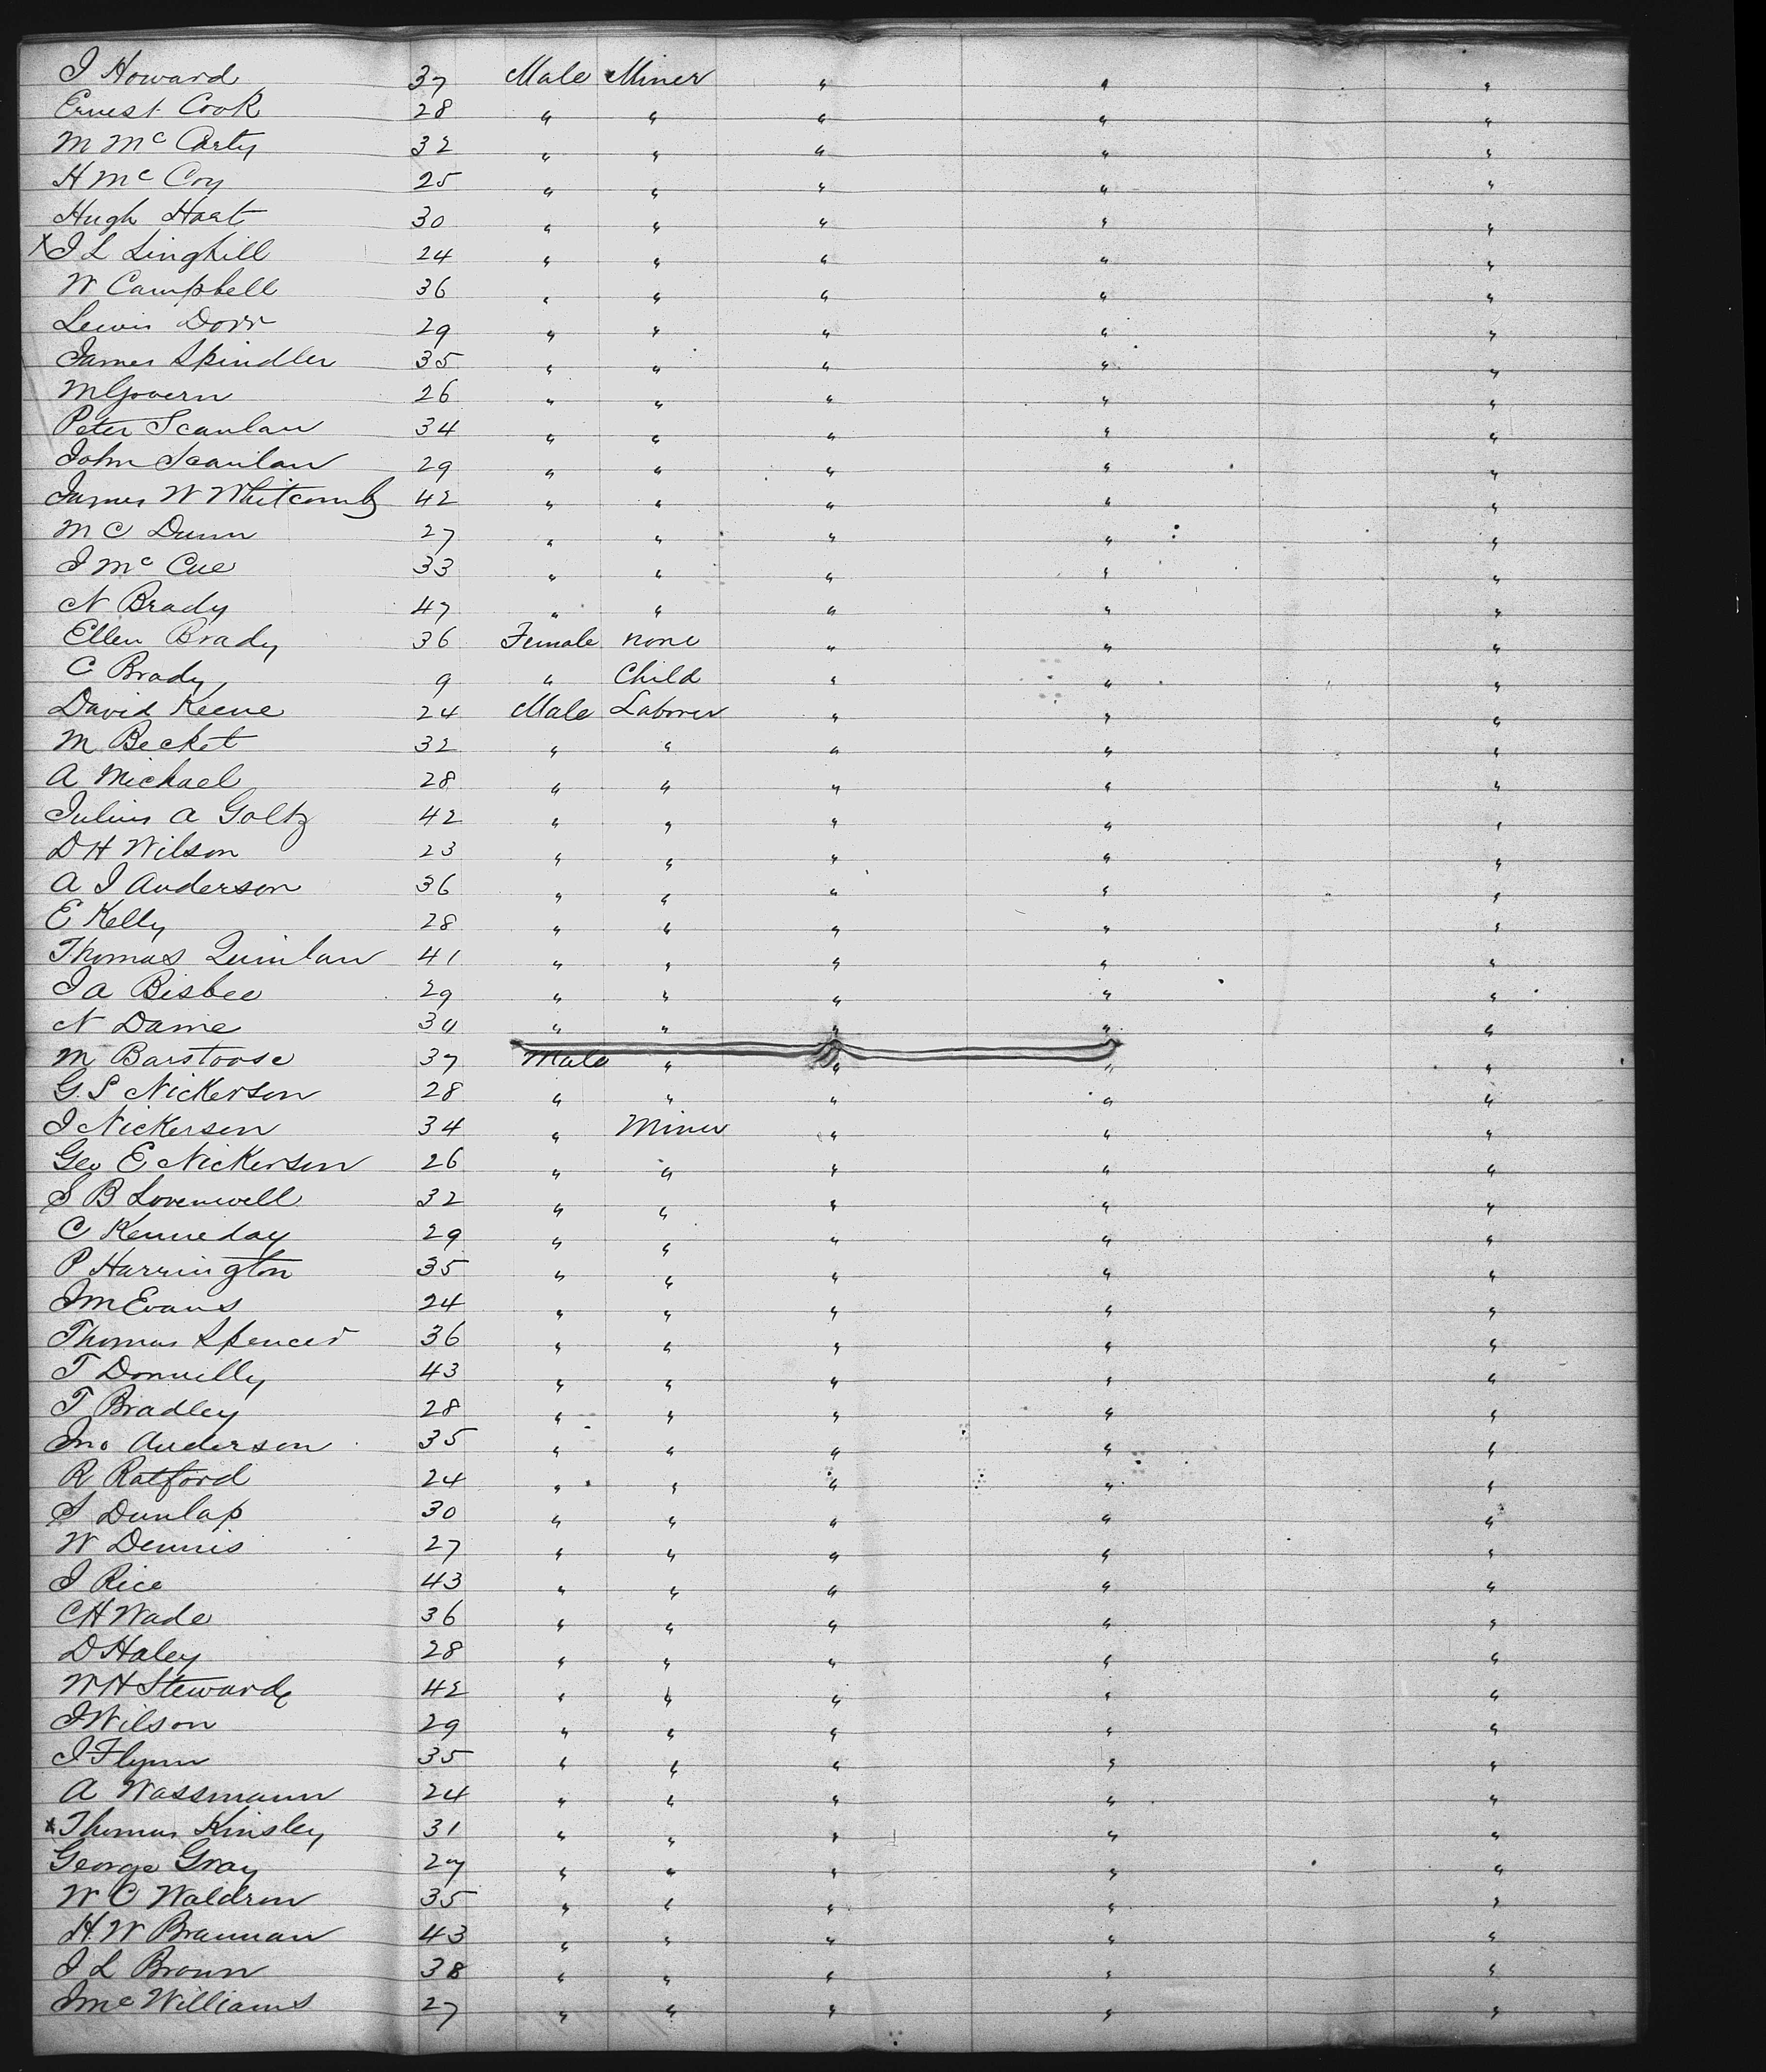 J Howard 37 Male Miner " " "
Ernest Cook 28 " " " " "
M McCarty 32 " " " " "
H McCoy 25 " " " " "
Hugh Hart 30 " " " " "
X J L Linghill 24 " " " " "
W Campbell 36 " " " " "
Lewis Dorr 29 " " " " "
James Spindler 35 " " " " "
M Govern 26 " " " " "
Peter Scanlan 34 " " " " "
John Scanlan 29 " " " " "
James W Whitcomb 42 " " " " "
M C Dunn 27 " " " " "
J McCue 33 " " " " "
N Brady 47 " " " " "
Ellen Brady 36 Female none " " "
C Brady 9 " Child " " "
David Keene 24 Male Laborer " " "
M Becket 32 " " " " "
A Michael 28 " " " " "
Julius A Goltz 42 " " " " "
D H Wilson 23 " " " " "
A J Anderson 36 " " " " "
E Kelly 28 " " " " "
Thomas Quinlan 41 " " " " "
J A Bisbee 29 " " " " "
N Dame 30 " " " " "
M Barstoose 37 Male " " " "
G. S Nickerson 28 " " " " "
J Nickerson 34 " Miner " " "
Geo E Nickerson 26 " " " " "
S B Lovenwell 32 " " " " "
C Kenneday 29 " " " " "
P Harrington 35 " " " " "
J M Evans 24 " " " " "
Thomas Spencer 36 " " " " "
T Donnilly 43 " " " " "
T Bradley 28 " " " " "
Jno Anderson 35 " " " " "
R Ratford 24 " " " " "
S Dunlap 30 " " " " "
W Dennis 27 " " " " "
J Rice 43 " " " " "
C H Wade 36 " " " " "
D Haley 28 " " " " "
W H Steward 42 " " " " "
J Wilson 29 " " " " "
J Flynn 35 " " " " "
A Wassmann 24 " " " " "
x Thomas Kinsley 31 " " " " "
George Gray 27 " " " " "
W C Waldron 35 " " " " "
H. W Brannan 43 " " " " "
J L Brown 38 " " " " "
J McWilliams 27 " " " " "